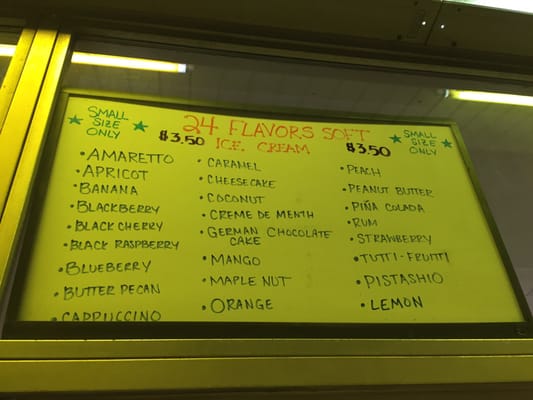 ★ SMALL SIZE ONLY ★
24 FLAVORS SOFT
ICE CREAM
$3.50
$3.50
★ SMALL SIZE ONLY ★
• AMARETTO
• APRICOT
• BANANA
• BLACKBERRY
• BLACK CHERRY
• BLACK RASPBERRY
• BLUEBERRY
• BUTTER PECAN
• CAPPUCCINO
• CARAMEL
• CHEESECAKE
• COCONUT
• CREME DE MENTH
• GERMAN CHOCOLATE
CAKE
• MANGO
• MAPLE NUT
• ORANGE
• PEACH
• PEANUT BUTTER
• PIÑA COLADA
• RUM
• STRAWBERRY
• TUTTI-FRUITTI
• PISTASHIO
• LEMON